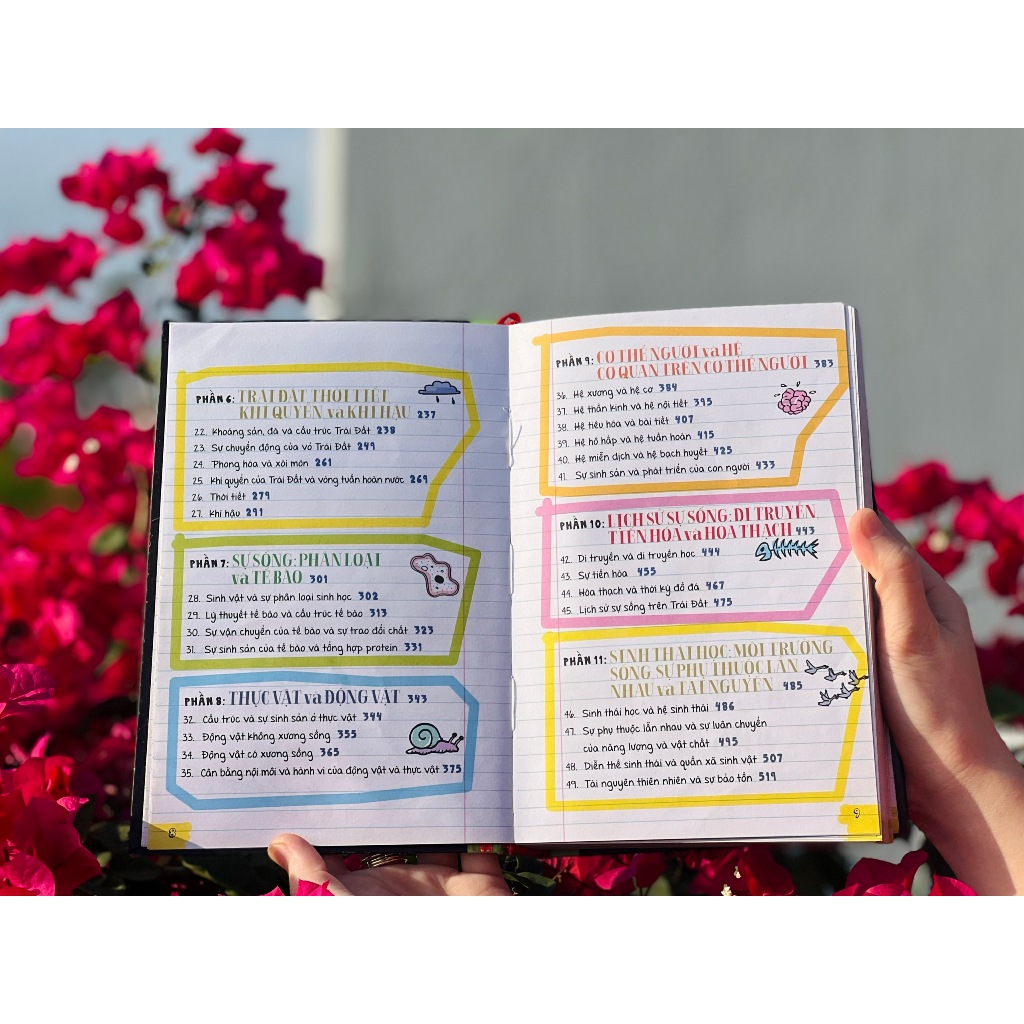 PHẦN 6: TRÁI ĐẤT, THỜI TIẾT,
KHÍ QUYỂN và KHÍ HẬU 237
22. Khoáng sản, đá và cấu trúc Trái Đất 238
23. Sự chuyển động của vỏ Trái Đất 249
24. Phong hóa và xói mòn 261
25. Khí quyển của Trái Đất và vòng tuần hoàn nước 269
26. Thời tiết 279
27. Khí hậu 291
PHẦN 7: SỰ SỐNG: PHÂN LOẠI
và TẾ BÀO 301
28. Sinh vật và sự phân loại sinh học 302
29. Lý thuyết tế bào và cấu trúc tế bào 313
30. Sự vận chuyển của tế bào và sự trao đổi chất 323
31. Sự sinh sản của tế bào và tổng hợp protein 331
PHẦN 8: THỰC VẬT và ĐỘNG VẬT 343
32. Cấu trúc và sự sinh sản ở thực vật 344
33. Động vật không xương sống 355
34. Động vật có xương sống 365
35. Cân bằng nội môi và hành vi của động vật và thực vật 375
8
PHẦN 9: CƠ THỂ NGƯỜI và HỆ
CƠ QUAN TRÊN CƠ THỂ NGƯỜI 383
36. Hệ xương và hệ cơ 384
37. Hệ thần kinh và hệ nội tiết 395
38. Hệ tiêu hóa và bài tiết 407
39. Hệ hô hấp và hệ tuần hoàn 415
40. Hệ miễn dịch và hệ bạch huyết 425
41. Sự sinh sản và phát triển của con người 433
PHẦN 10: LỊCH SỬ SỰ SỐNG: DI TRUYỀN,
TIẾN HÓA và HÓA THẠCH 443
42. Di truyền và di truyền học 444
43. Sự tiến hóa 455
44. Hóa thạch và thời kỳ đồ đá 467
45. Lịch sử sự sống trên Trái Đất 475
PHẦN 11: SINH THÁI HỌC: MÔI TRƯỜNG
SỐNG, SỰ PHỤ THUỘC LẪN
NHAU và TÀI NGUYÊN 485
46. Sinh thái học và hệ sinh thái 486
47. Sự phụ thuộc lẫn nhau và sự luân chuyển
của năng lượng và vật chất 495
48. Diễn thế sinh thái và quần xã sinh vật 507
49. Tài nguyên thiên nhiên và sự bảo tồn 519
9